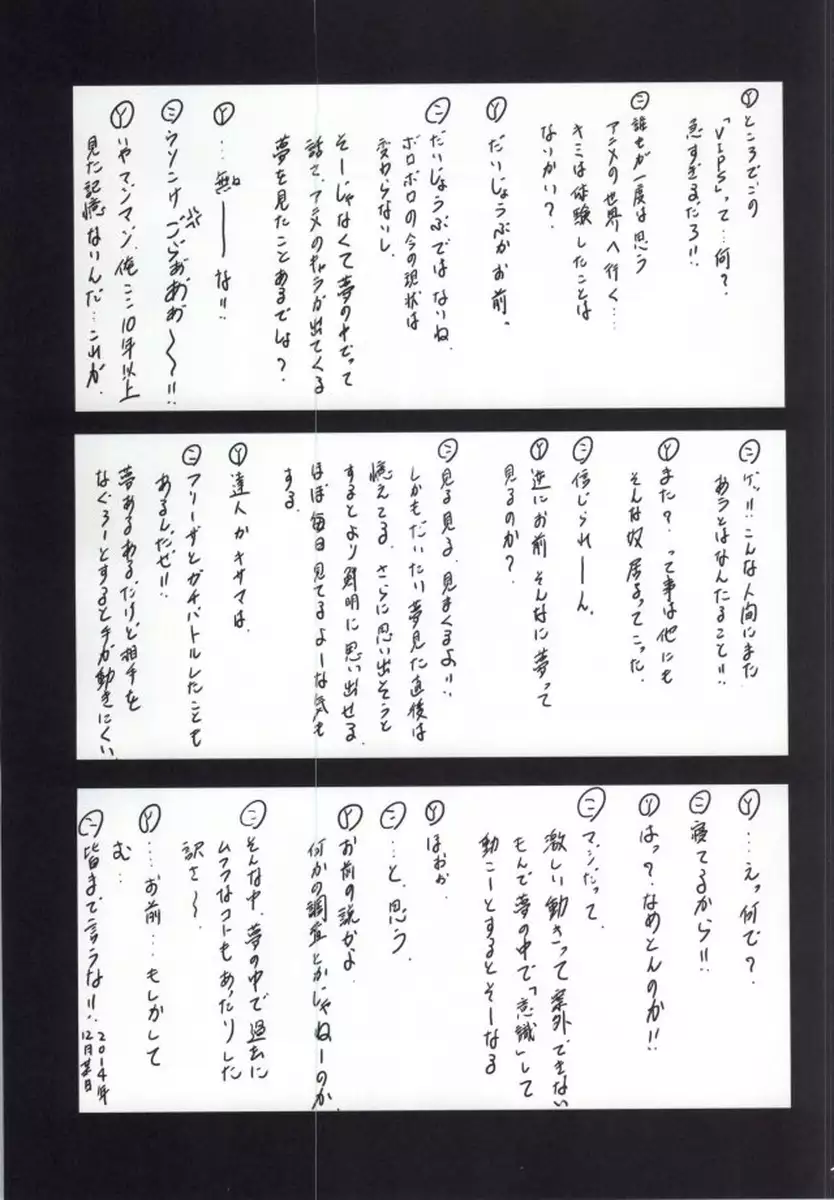 Ⓨところでこの
「VIPS」って…何?
急すぎるだろ!!
㊁誰もが一度は思う
アニメの世界へ行く……
キミは体験したことは
ないかい?
Ⓨだいじょうぶかお前。
㊁だいじょうぶではないね。
ボロボロの今の現状は
変わらないし。
そーじゃなくて夢の中でって
話さ、アニメのキャラが出てくる
夢を見たことあるでしょ?
Ⓨ…無ーーな!!
㊁ウソこけ ごらぁぁあぁ〜〜!!
Ⓨいやマンマン、俺ここ10年以上
見た記憶ないんだ…これが。
㊁ゲッ!!こんな人間にまた
あうとはなんたること!!
Ⓨまた?って事は他にも
そんな奴居るってこった。
㊁信じられーん。
Ⓨ逆にお前そんなに夢って
見るのか?
㊁見る見る、見まくるよ!!
しかもだいたい夢見た直後は
憶えてる。さらに思い出そうと
するとより鮮明に思い出せる。
ほぼ毎日見てるよーな気も
する。
Ⓨ達人かキサマは。
㊁フリーザとガチバトルしたことも
あるしだぜ!!
夢あるあるだけど相手を
なぐろーとすると手が動きにくい。
Ⓨ……えっ何で?
㊁寝てるから!!
Ⓨはっ?なめとんのか!!
㊁マジだって。
激しい動きって案外、できない
もんで夢の中で「意識」して
動こーとするとそーなる
Ⓨほぉか。
㊁…と、思う。
Ⓨお前の説かよ
何かの調査とかじゃねーのか。
㊁そんな中、夢の中で過去に
ムフフなコトもあったりした
訳さ〜。
Ⓨ……お前…もしかして
む…
㊁皆まで言うな!!
2014年
12月某日